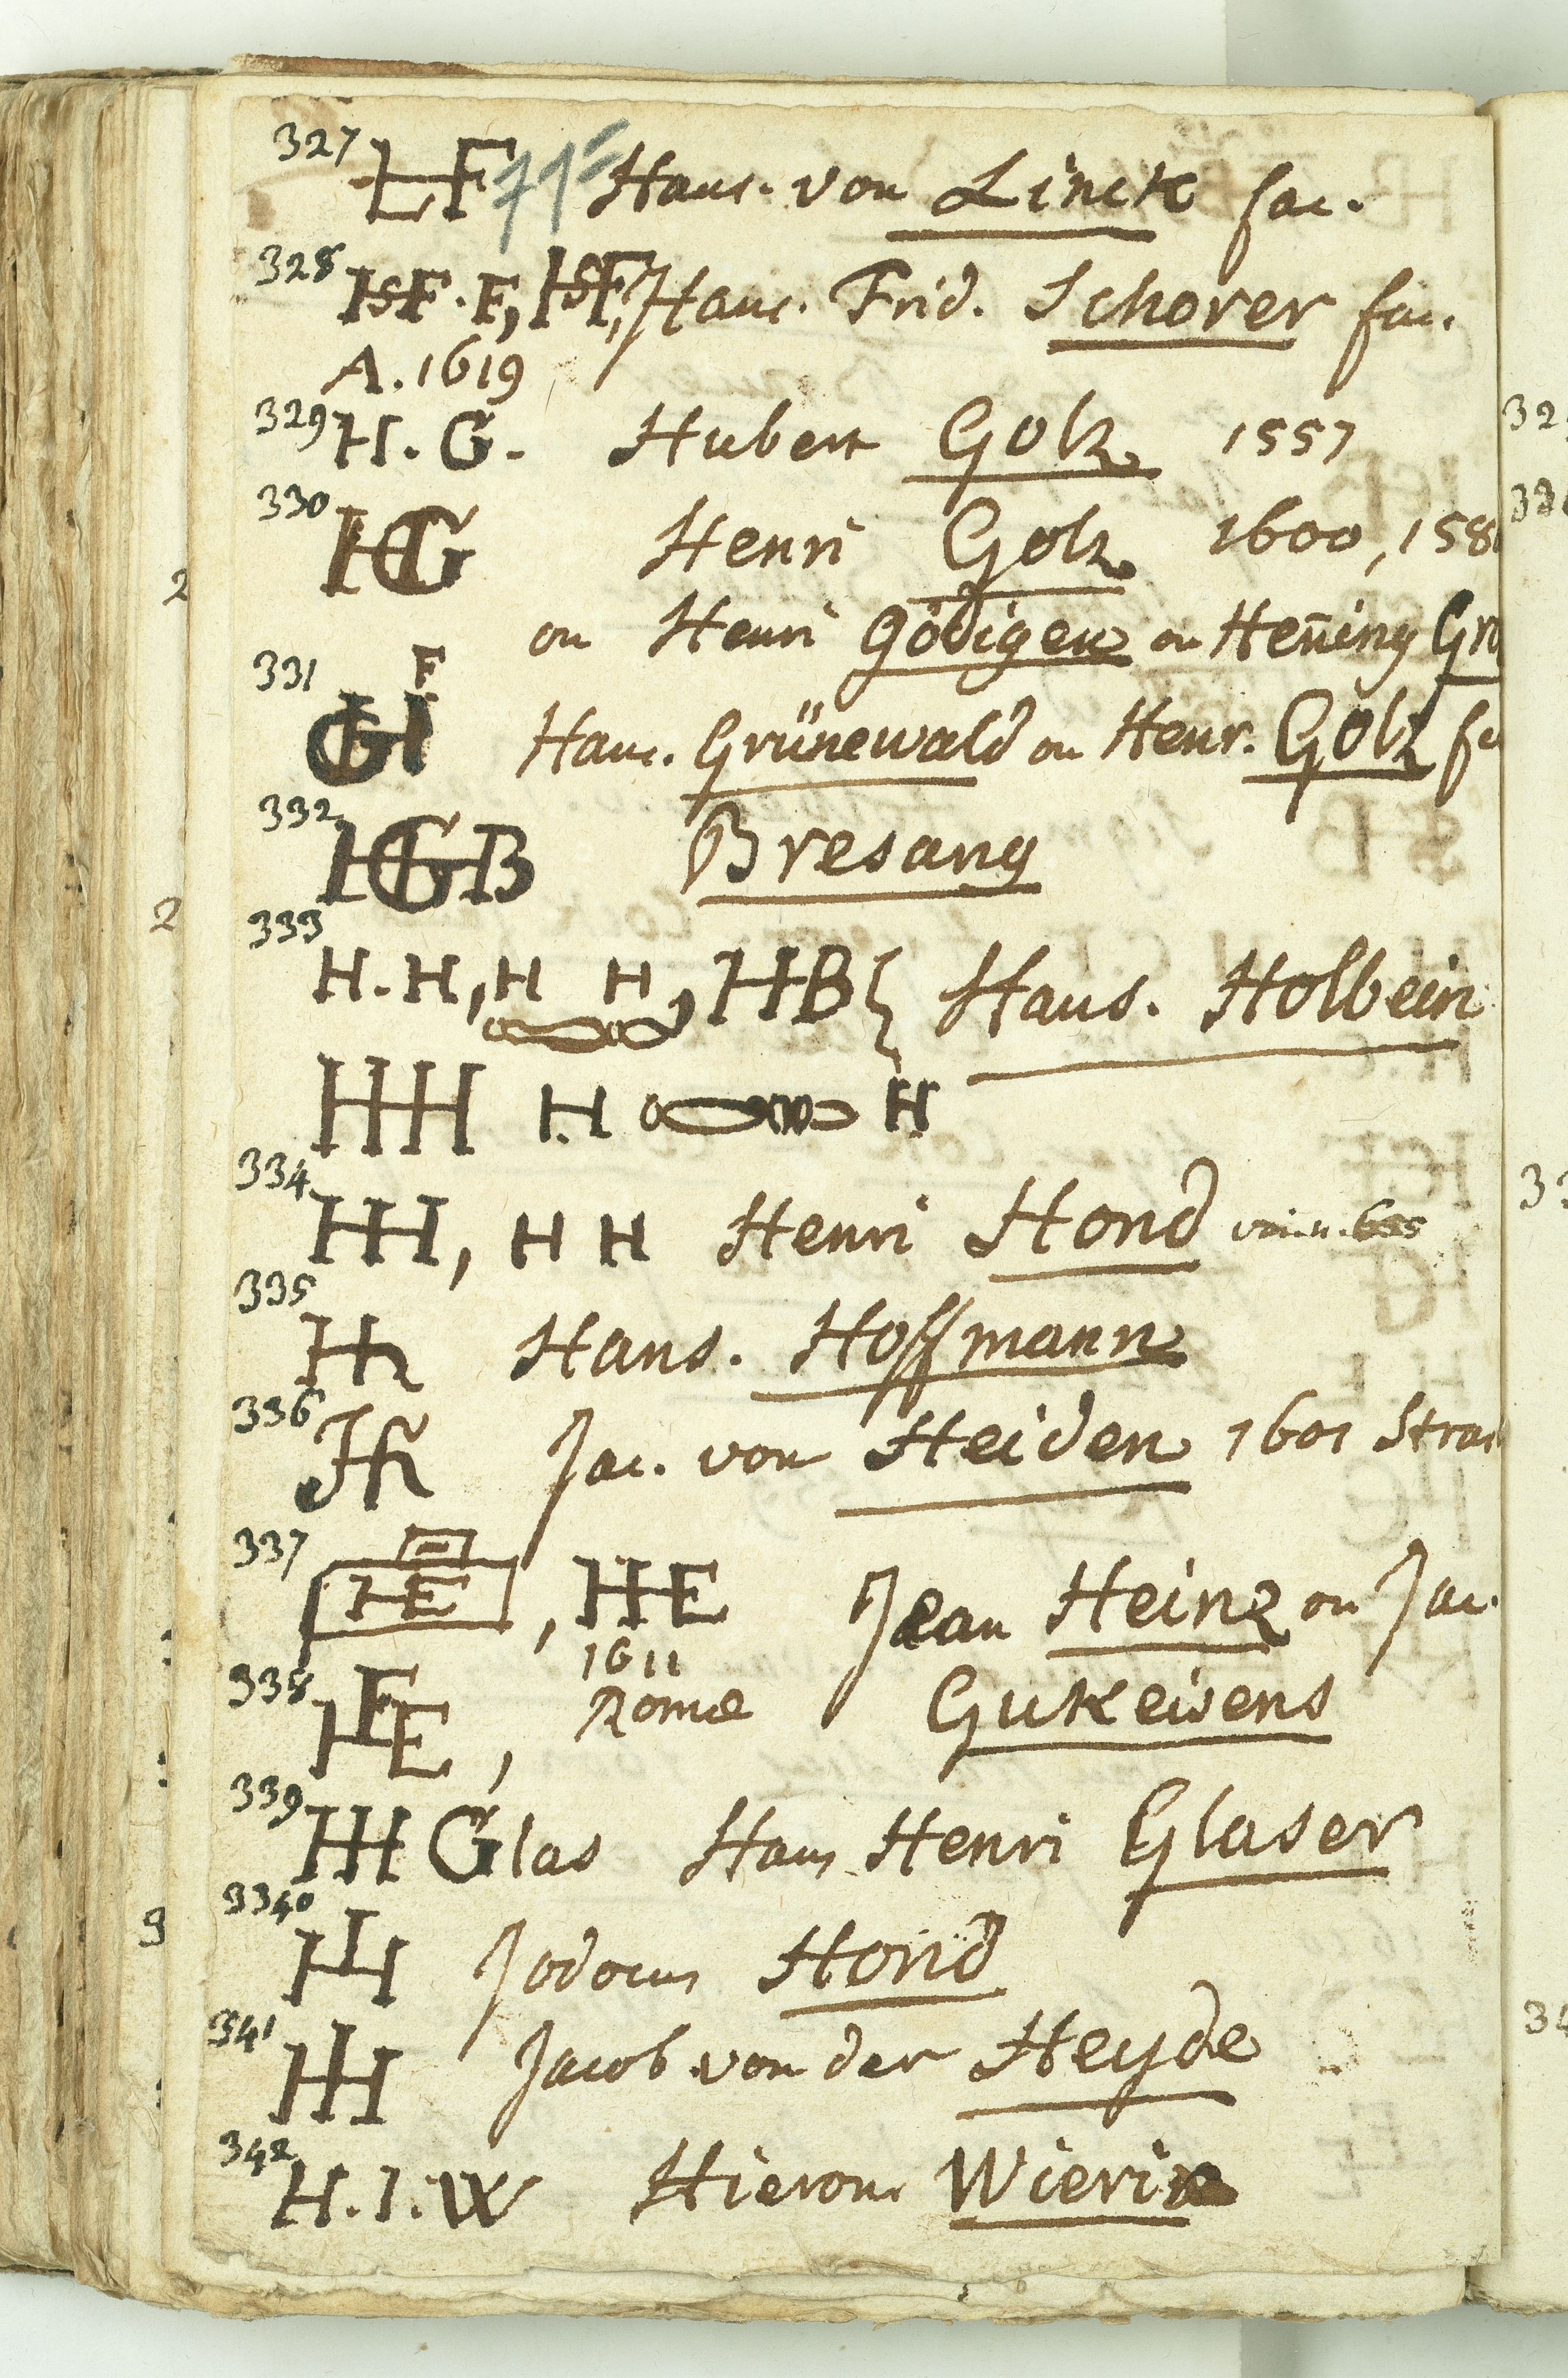 327 LF Hans. von Linck fac.
328 HSF. F, HSF, Hans. Frid. Schorer fac.
A. 1619
329 H. G. Hubert Golz 1557
330 HG Henri Golz 1600, 158
ou Henri Gödigen ou Hen̄ing Gro
331 GH F Hans. Grünewald ou Henr. Golz
332 HGB Bresang
333 H. H, H H, HB } Hans. Holbein
HH H H
334 HH, H H Henri Hond
335 Hh Hans. Hoffmann
336 JH Jac. von Heiden 1601 Stras
337 HE, HE Jean Heinz ou Jac.
1611
338 HFE, Romæ Gukeisens
339 HH Glas Hans Henri Glaser
3340 HI Jodocus Hond
341 HI Jacob von der Heyde
342 H. I. W Hieron. Wierix